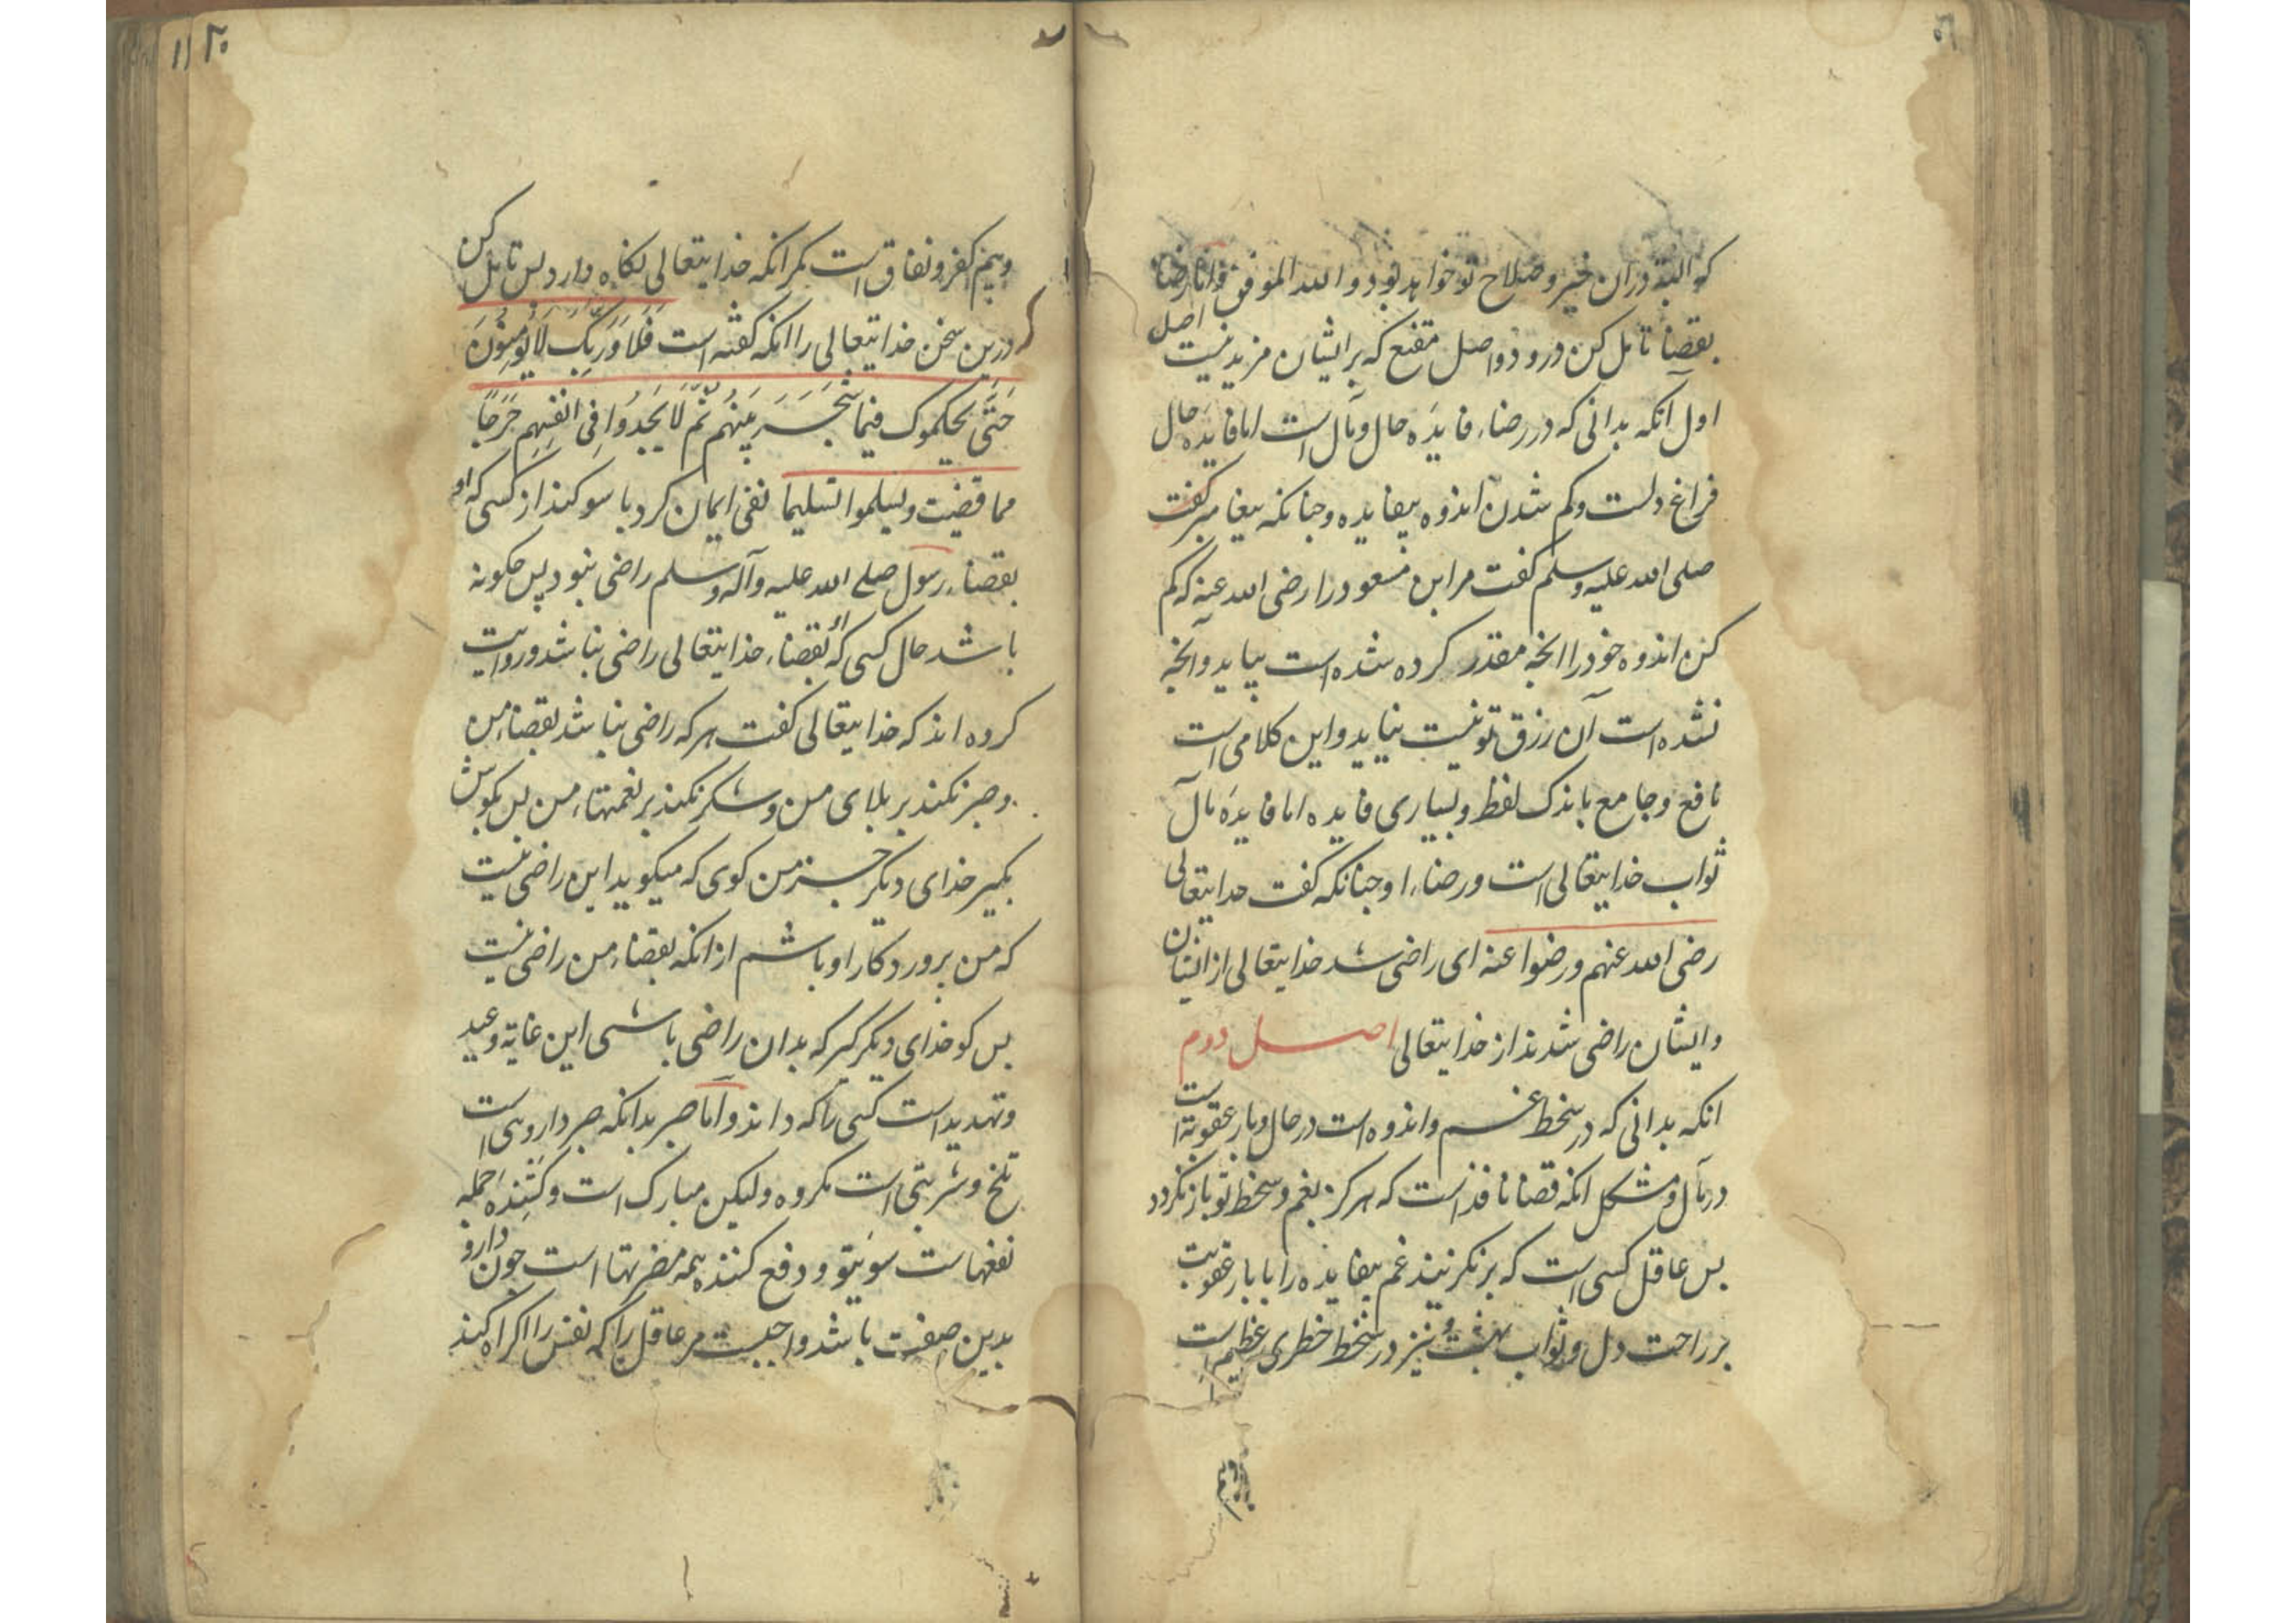 که البته دران خیر و صلاح تو خواهد بود و الله الموفق و اما رضا
بقضا تامل کن درو دو اصل مقنع که برایشان مزید نیست اصل
اول آنکه بدانی که در رضاء فایدۀ حال و مآل است اما فایدۀ حال
فراغ دلست و کم شدن اندوه بیفایده و جنانکه پیغامبر گفت
صلی الله علیه وسلم گفت مر ابن مسعود را رضی الله عنه که کم
کن اندوه خود را انچه مقدر کرده شده است بیاید و انچه
نشده است آن رزق تو نیست نیاید و این کلامی است
نافع و جامع باندک لفظ و بسیاری فایده اما فایدۀ مآل
ثواب خدایتعالی است و رضاء او جنانکه گفت خدایتعالی
رضی الله عنهم و رضوا عنه ای راضی شد خدایتعالی از ایشان
و ایشان راضی شدند از خدایتعالی اصل دوم
انکه بدانی که در سخط غم و اندوه است در حال و بار عقوبة است
در مآل و مشکل انکه قضا نافذ است که هرکز بغم و سخط تو باز نکردد
بس عاقل کسی است که بر نکزیند غم بیفایده را با بار عقوبت
بر راحت دل و ثواب بهشت و نیز در سخط خطری عظیم است
۲۰ ۱۱
و بیم کفر و نفاق است مکر انکه خدایتعالی نکاه دارد بس تامل کن
درین سخن خدایتعالی را انکه گفته است فَلَا وَرَبِّكَ لَا يُؤْمِنُونَ
حَتَّى يحكموك فيما شجر بينهم ثُمَّ لَا يَجِدُوا فِي انفسهم حَرَجًا
مما قضيت ويسلموا تسليما نفی ایمان کرد با سوکند از کسی که او
بقضاء رسول صلی الله علیه وآله وسلم راضی نبود پس جکونه
باشد حال کسی که او بقضاء خدایتعالی راضی نباشد و روایت
کرده اند که خدایتعالی گفت هر که راضی نباشد بقضاء من
و صبر نکند بر بلای من و شکر نکند بر نعمتهاء من بس کوش
بکیر خدای دیکر جز من کوی که میکوید این راضی نیست
که من برورد کار او باشم از انکه بقضاء من راضی نیست
بس کو خدای دیکر کیر که بدان راضی باشی این غایة وعید
و تهدید است کسی را که داند و اما صبر بدانکه صبر داروی است
تلخ و شربتی است مکروه ولیکن مبارک است و کشنده جمله
نفعهاست سوئ تو و دفع کننده همه مضرتها است جون دارو
بدین صفت باشد واجبست مر عاقل را که نفس را اکراه کند